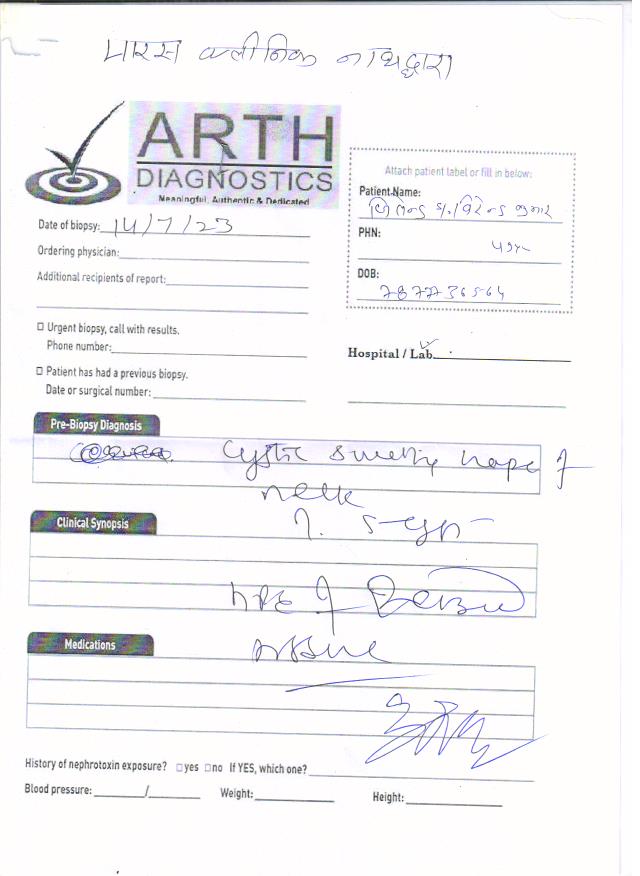 पारस क्लीनिक नाथद्वारा
ARTH
DIAGNOSTICS
Meaningful, Authentic & Dedicated
Attach patient label or fill in below:
Patient Name:
कुमार
PHN:
DOB:
7877736564
Date of biopsy: 14/7/23
Ordering physician:
Additional recipients of report:
Urgent biopsy, call with results.
Phone number:
Hospital / Lab
Patient has had a previous biopsy.
Date or surgical number:
Pre-Biopsy Diagnosis
Cystic swelling nape of
neck
Clinical Synopsis
HPE of
Medications
History of nephrotoxin exposure? yes no If YES, which one?
Blood pressure: / Weight: Height: